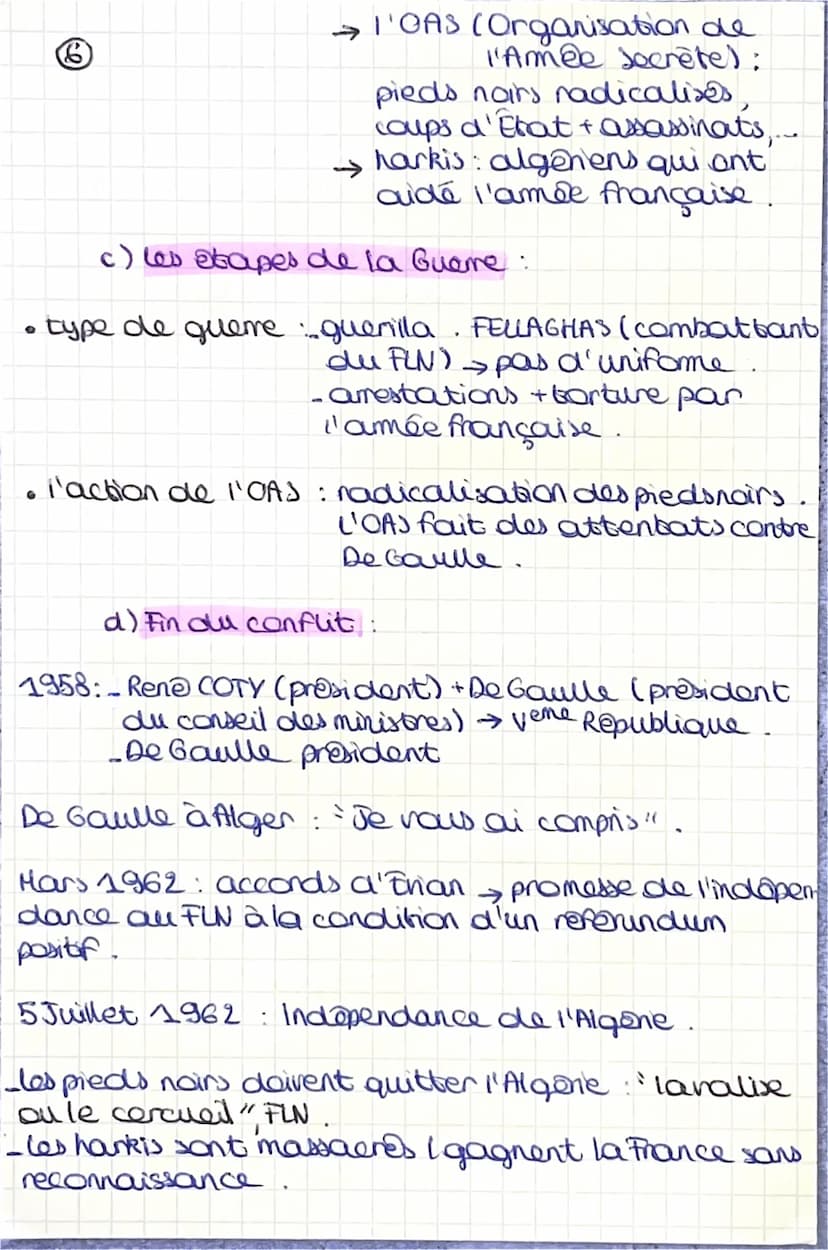 ⑥
→ l'OAS (Organisation de
l'Armée secrète) :
pieds noirs radicalisés,
coups d'État + assassinats,...
→ harkis : algériens qui ont
aidé l'armée française.
c) Les étapes de la Guerre :
• type de guerre : - guerilla. FELLAGHAS (combattant
du FLN) → pas d'uniforme.
- arrestations + torture par
l'armée française.
• l'action de l'OAS : radicalisation des pieds noirs.
L'OAS fait des attentats contre
De Gaulle.
d) Fin du conflit :
1958 : - René COTY (président) + De Gaulle (président
du conseil des ministres) → Veme République.
- De Gaulle président
De Gaulle à Alger : "Je vous ai compris".
Mars 1962 : accords d'Evian → promesse de l'indépen
dance au FLN à la condition d'un referundum
positif.
5 Juillet 1962 : Indépendance de l'Algérie.
- les pieds noirs doivent quitter l'Algérie : "la valise
ou le cercueil", FLN.
- Les harkis sont massacrés (gagnent la France sans
reconnaissance.